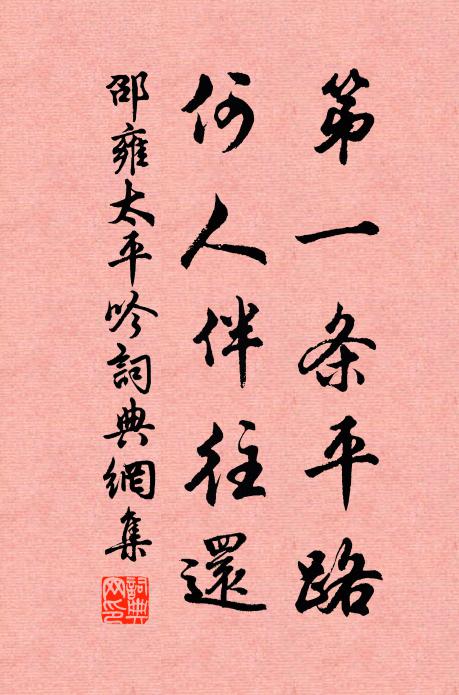 第一条平路
何人伴往還
邵雍太平吟詞典網集
詞典网印